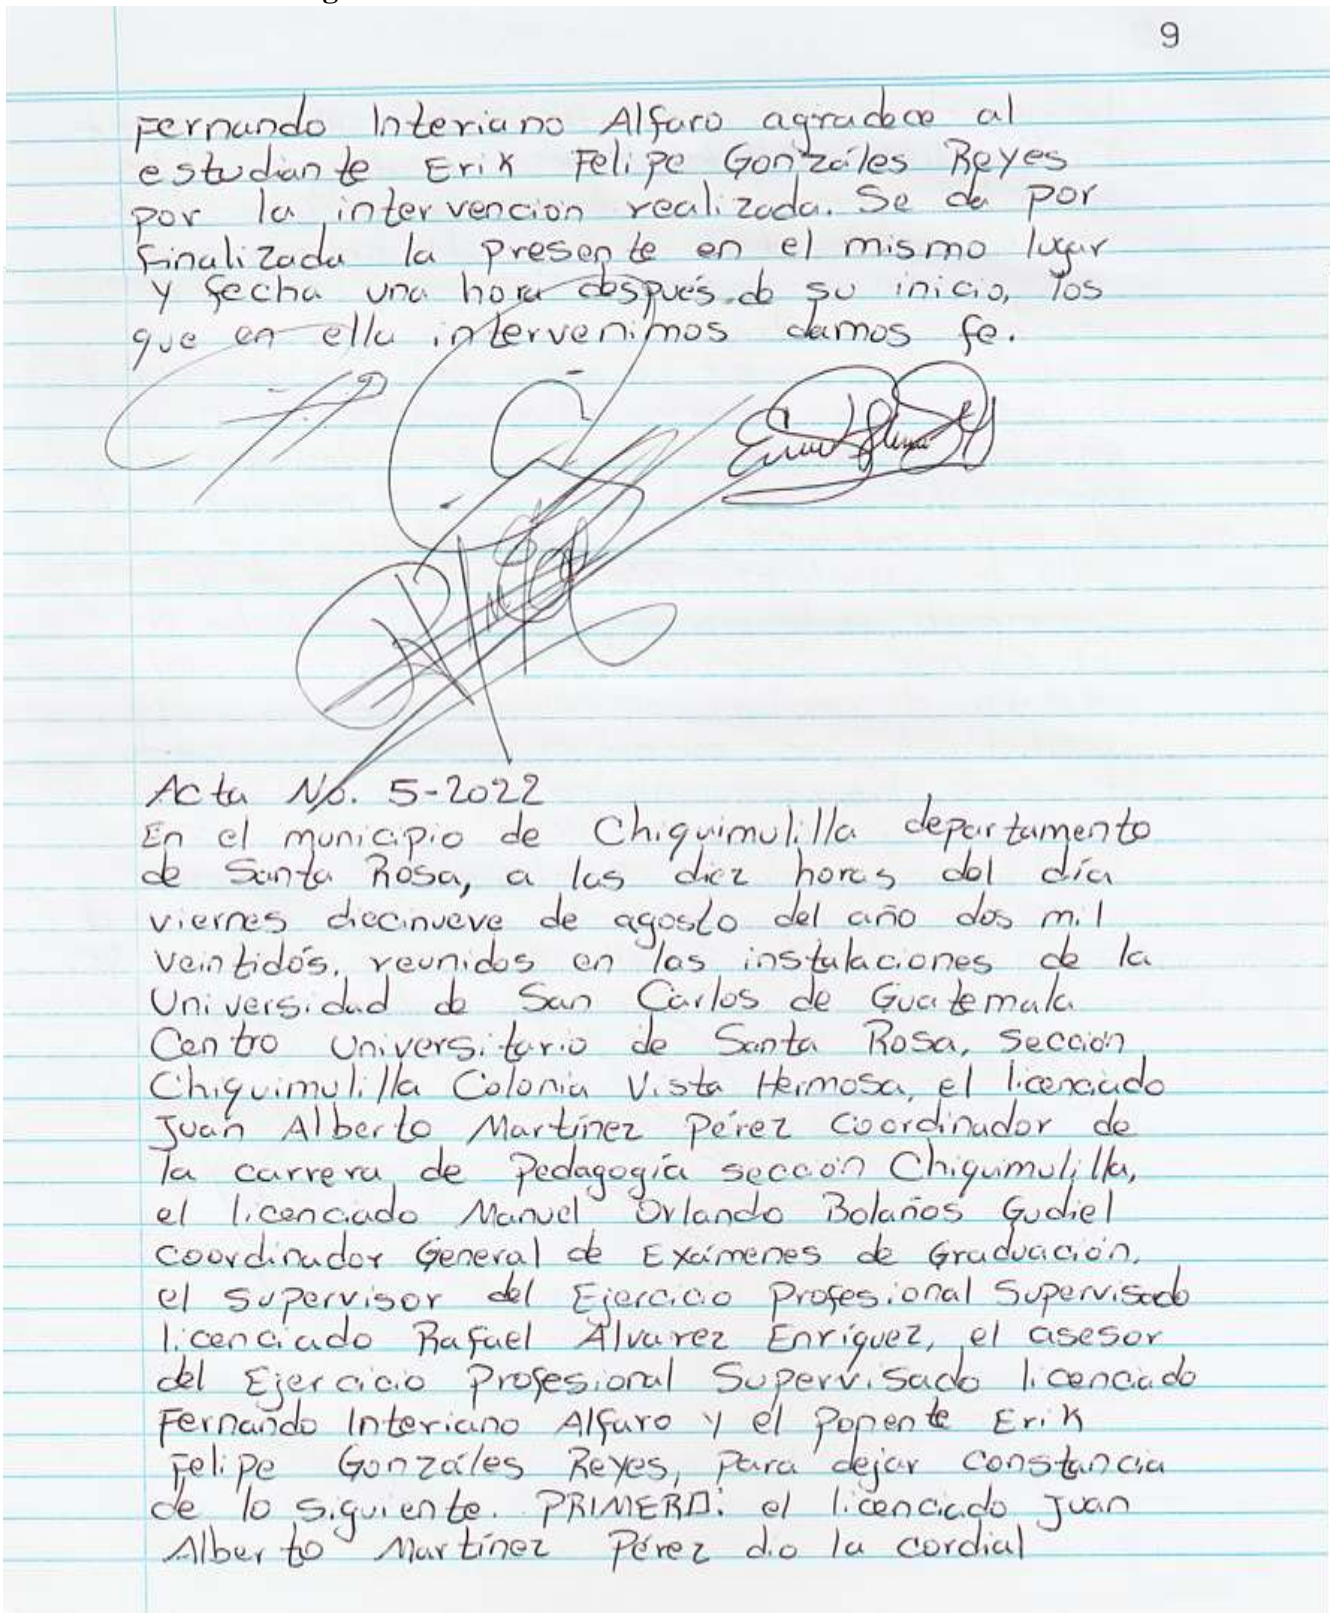 9
Fernando Interiano Alfaro agradece al
estudiante Erik Felipe Gonzáles Reyes
por la intervención realizada. Se da por
finalizada la presente en el mismo lugar
y fecha una hora después de su inicio, los
que en ella intervenimos damos fe.
Acta No. 5-2022
En el municipio de Chiquimulilla departamento
de Santa Rosa, a las diez horas del día
viernes diecinueve de agosto del año dos mil
veintidós, reunidos en las instalaciones de la
Universidad de San Carlos de Guatemala
Centro Universitario de Santa Rosa, sección
Chiquimulilla Colonia Vista Hermosa, el licenciado
Juan Alberto Martínez Pérez Coordinador de
la carrera de Pedagogía sección Chiquimulilla,
el licenciado Manuel Orlando Bolaños Gudiel
Coordinador General de Exámenes de Graduación,
el supervisor del Ejercicio Profesional Supervisado
licenciado Rafael Álvarez Enríquez, el asesor
del Ejercicio Profesional Supervisado licenciado
Fernando Interiano Alfaro y el Ponente Erik
Felipe Gonzáles Reyes, para dejar constancia
de lo siguiente. PRIMERO: el licenciado Juan
Alberto Martínez Pérez dio la cordial